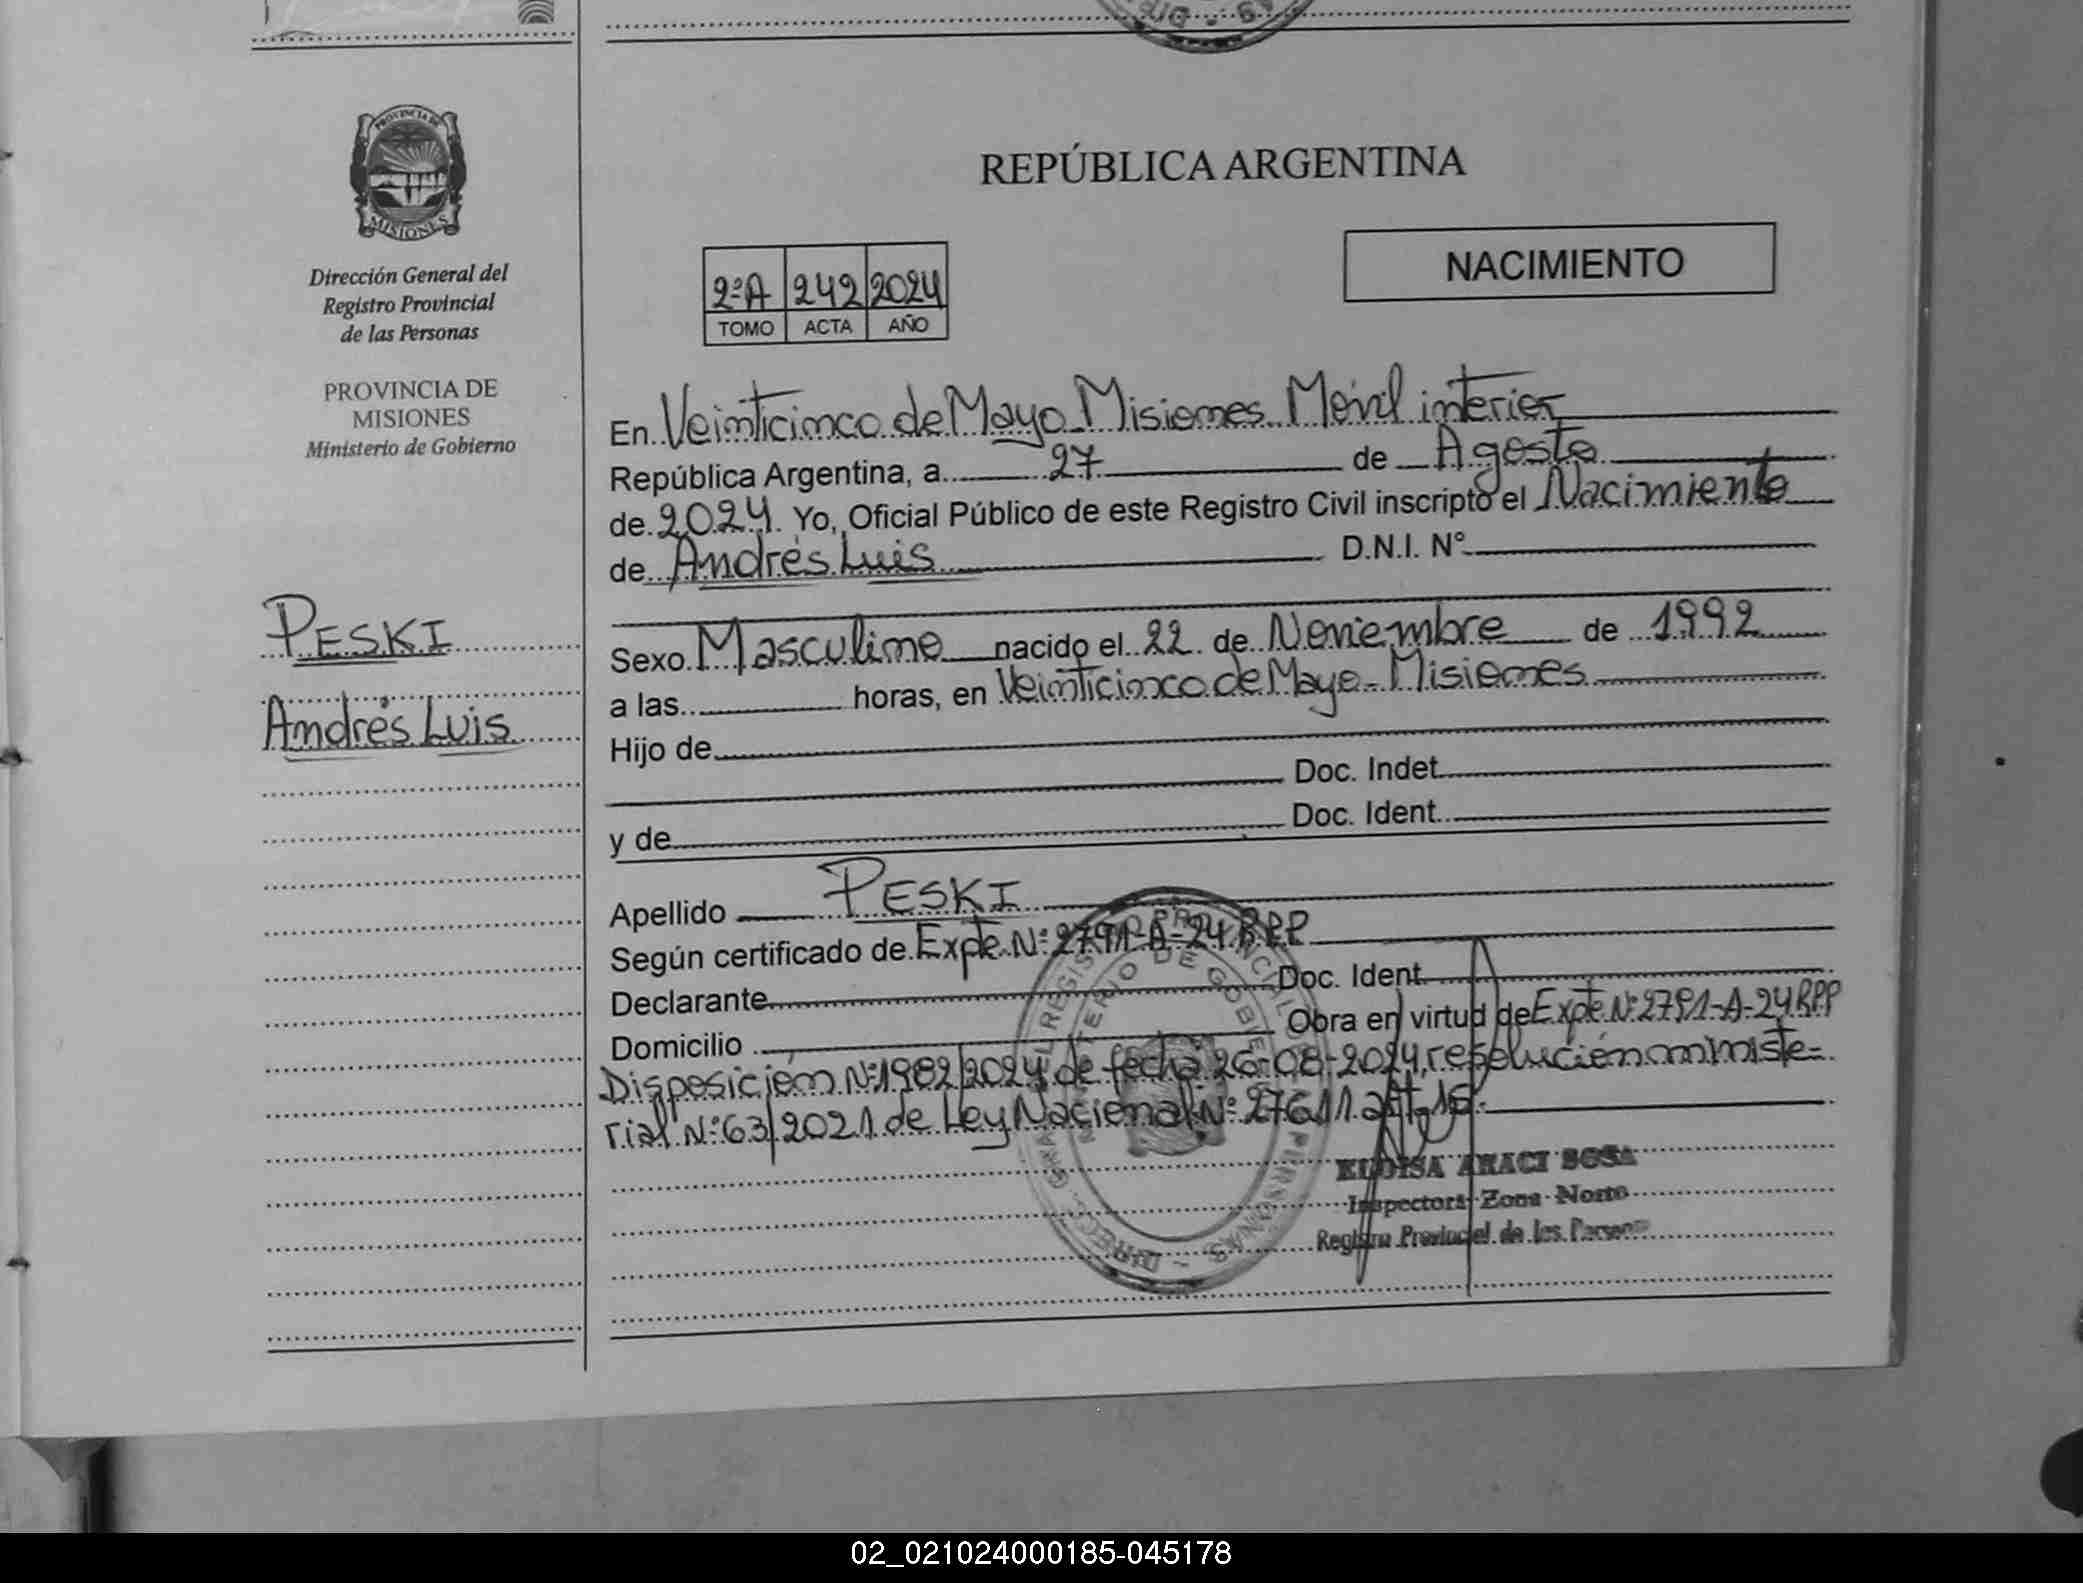 PROVINCIA DE
MISIONES
Dirección General del
Registro Provincial
de las Personas
PROVINCIA DE
MISIONES
Ministerio de Gobierno
PESKI
Andrés Luis
REPÚBLICA ARGENTINA
NACIMIENTO
2ºA 242 2024
TOMO ACTA AÑO
En Veinticinco de Mayo Misiones Móvil interior
República Argentina, a 27 de Agosto
de 2024. Yo, Oficial Público de este Registro Civil inscripto el Nacimiento
de Andrés Luis D.N.I. Nº
Sexo Masculino nacido el 22 de Noviembre de 1992
a las horas, en Veinticinco de Mayo - Misiones
Hijo de
Doc. Indet
y de Doc. Ident.
Apellido PESKI
Según certificado de Expte Nº 2791-A-24 RPP
Declarante Doc. Ident
Domicilio Obra en virtud de Expte Nº 2791-A-24 RPP
Disposición Nº 1982/2024 de fecha 26-08-2024, resolución ministe-
rial Nº 63/2021 de Ley Nacional Nº 27611 art 16.
ELOISA ARACI SOSA
Inspectora Zona Norte
Registro Provincial de las Personas
02_021024000185-045178